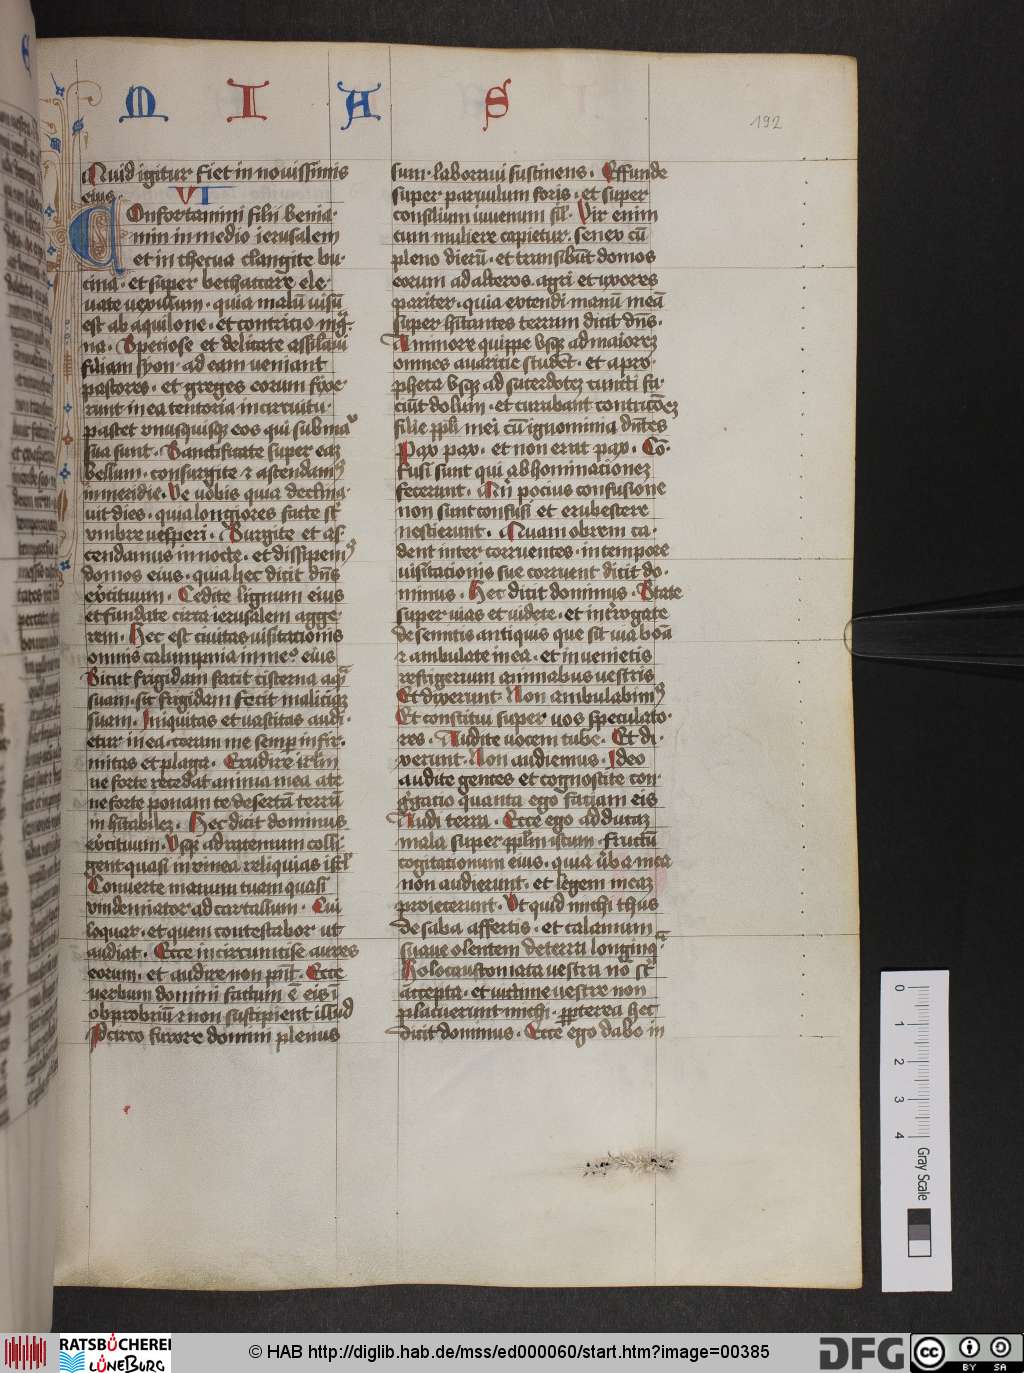 M I A S
192
Quid igitur fiet in nouissimis
eius. VI
Confortamini filii benia-
min in medio ierusalem
et in thecua clangite bu-
cina. et super bethaccare ele-
uate vexillum. quia malū uisū
est ab aquilone. et contricio mag-
na. Speciose et delicate assilaui
filiam syon. ad eam uenient
pastores. et greges eorum fixe-
runt in ea tentoria in circuitu.
pascet vnusquisqz eos qui sub manu
sua sunt. Sanctificate super eaz
bellum. consurgite et ascendamus
in meridie. Ve uobis quia declina-
uit dies. quia longiores facte st
vmbre uesperi. Surgite et as-
cendamus in nocte. et dissipemus
domos eius. quia hec dicit dns
exercituum. Cedite lignum eius
et fundate circa ierusalem agge-
rem. Hec est ciuitas uisitacionis
omnis calumpnia in medio eius
Sicut frigidam facit cisterna aquā
suam. sic frigidam fecit maliciaz
suam. Iniquitas et uastitas audi-
etur in ea. coram me semp infir-
mitas et plaga. Erudire irlm
ne forte recedat anima mea a te
ne forte ponam te desertā terrā
inhabitabilez. Hec dicit dominus
exercituum. Vsqz ad racemum colli-
gent quasi in vinea reliquias isrl
Conuerte manum tuam quasi
vindemiator ad cartallum. Cui
loquar. et quem contestabor ut
audiat. Ecce incircumcise aures
eorum. et audire non pnt. Ecce
uerbum domini factum ē eis ī
obprobriū et non suscipient illud
Idcirco furore domini plenus
sum. laboraui sustinens. Effunde
super paruulum foris. et super
consilium iuuenum sil. Vir enim
cum muliere capietur. senex cū
pleno dierū. et transibūt domos
eorum ad alteros. agri et vxores
pariter. quia extendi manū meā
super hitantes terram dicit dns.
A minore quippe vsqz ad maiorez
omnes auaricie studēt. et a pro-
pheta vsqz ad sacerdotez cuncti fa-
ciūt dolum. et curabant contricōez
filie ppli mei cū ignominia dicentes
Pax pax. et non erat pax. Cō-
fusi sunt qui abhominacionez
fecerunt. Quī pocius confusione
non sunt confusi et erubescere
nescierunt. Quam obrem ca-
dent inter corruentes. in tempore
uisitacionis sue corruent dicit do-
minus. Hec dicit dominus. State
super uias et uidete. et interrogate
de semitis antiquis que sit uia bōa
et ambulate in ea. et inuenietis
refrigerium animabus uestris
Et dixerunt. Non ambulabimus
Et constitui super uos speculato-
res. Audite uocem tube. Et di-
xerunt. Non audiemus. Ideo
audite gentes et cognoscite con-
gregatio quanta ego faciam eis
Audi terra. Ecce ego adducaz
mala super pplm istum fructū
cogitacionum eius. quia uba mea
non audierunt. et legem meaz
proiecerunt. Vt quid michi thus
de saba affertis. et calamum
suaue olentem de terra longinqua
Holocaustomata uestra nō st
accepta. et uictime uestre non
placuerunt michi. ppterea hec
dicit dominus. Ecce ego dabo in
0 1 2 3 4
Gray Scale
RATSBÜCHEREI
LÜNEBURG
© HAB http://diglib.hab.de/mss/ed000060/start.htm?image=00385
DFG
cc BY SA